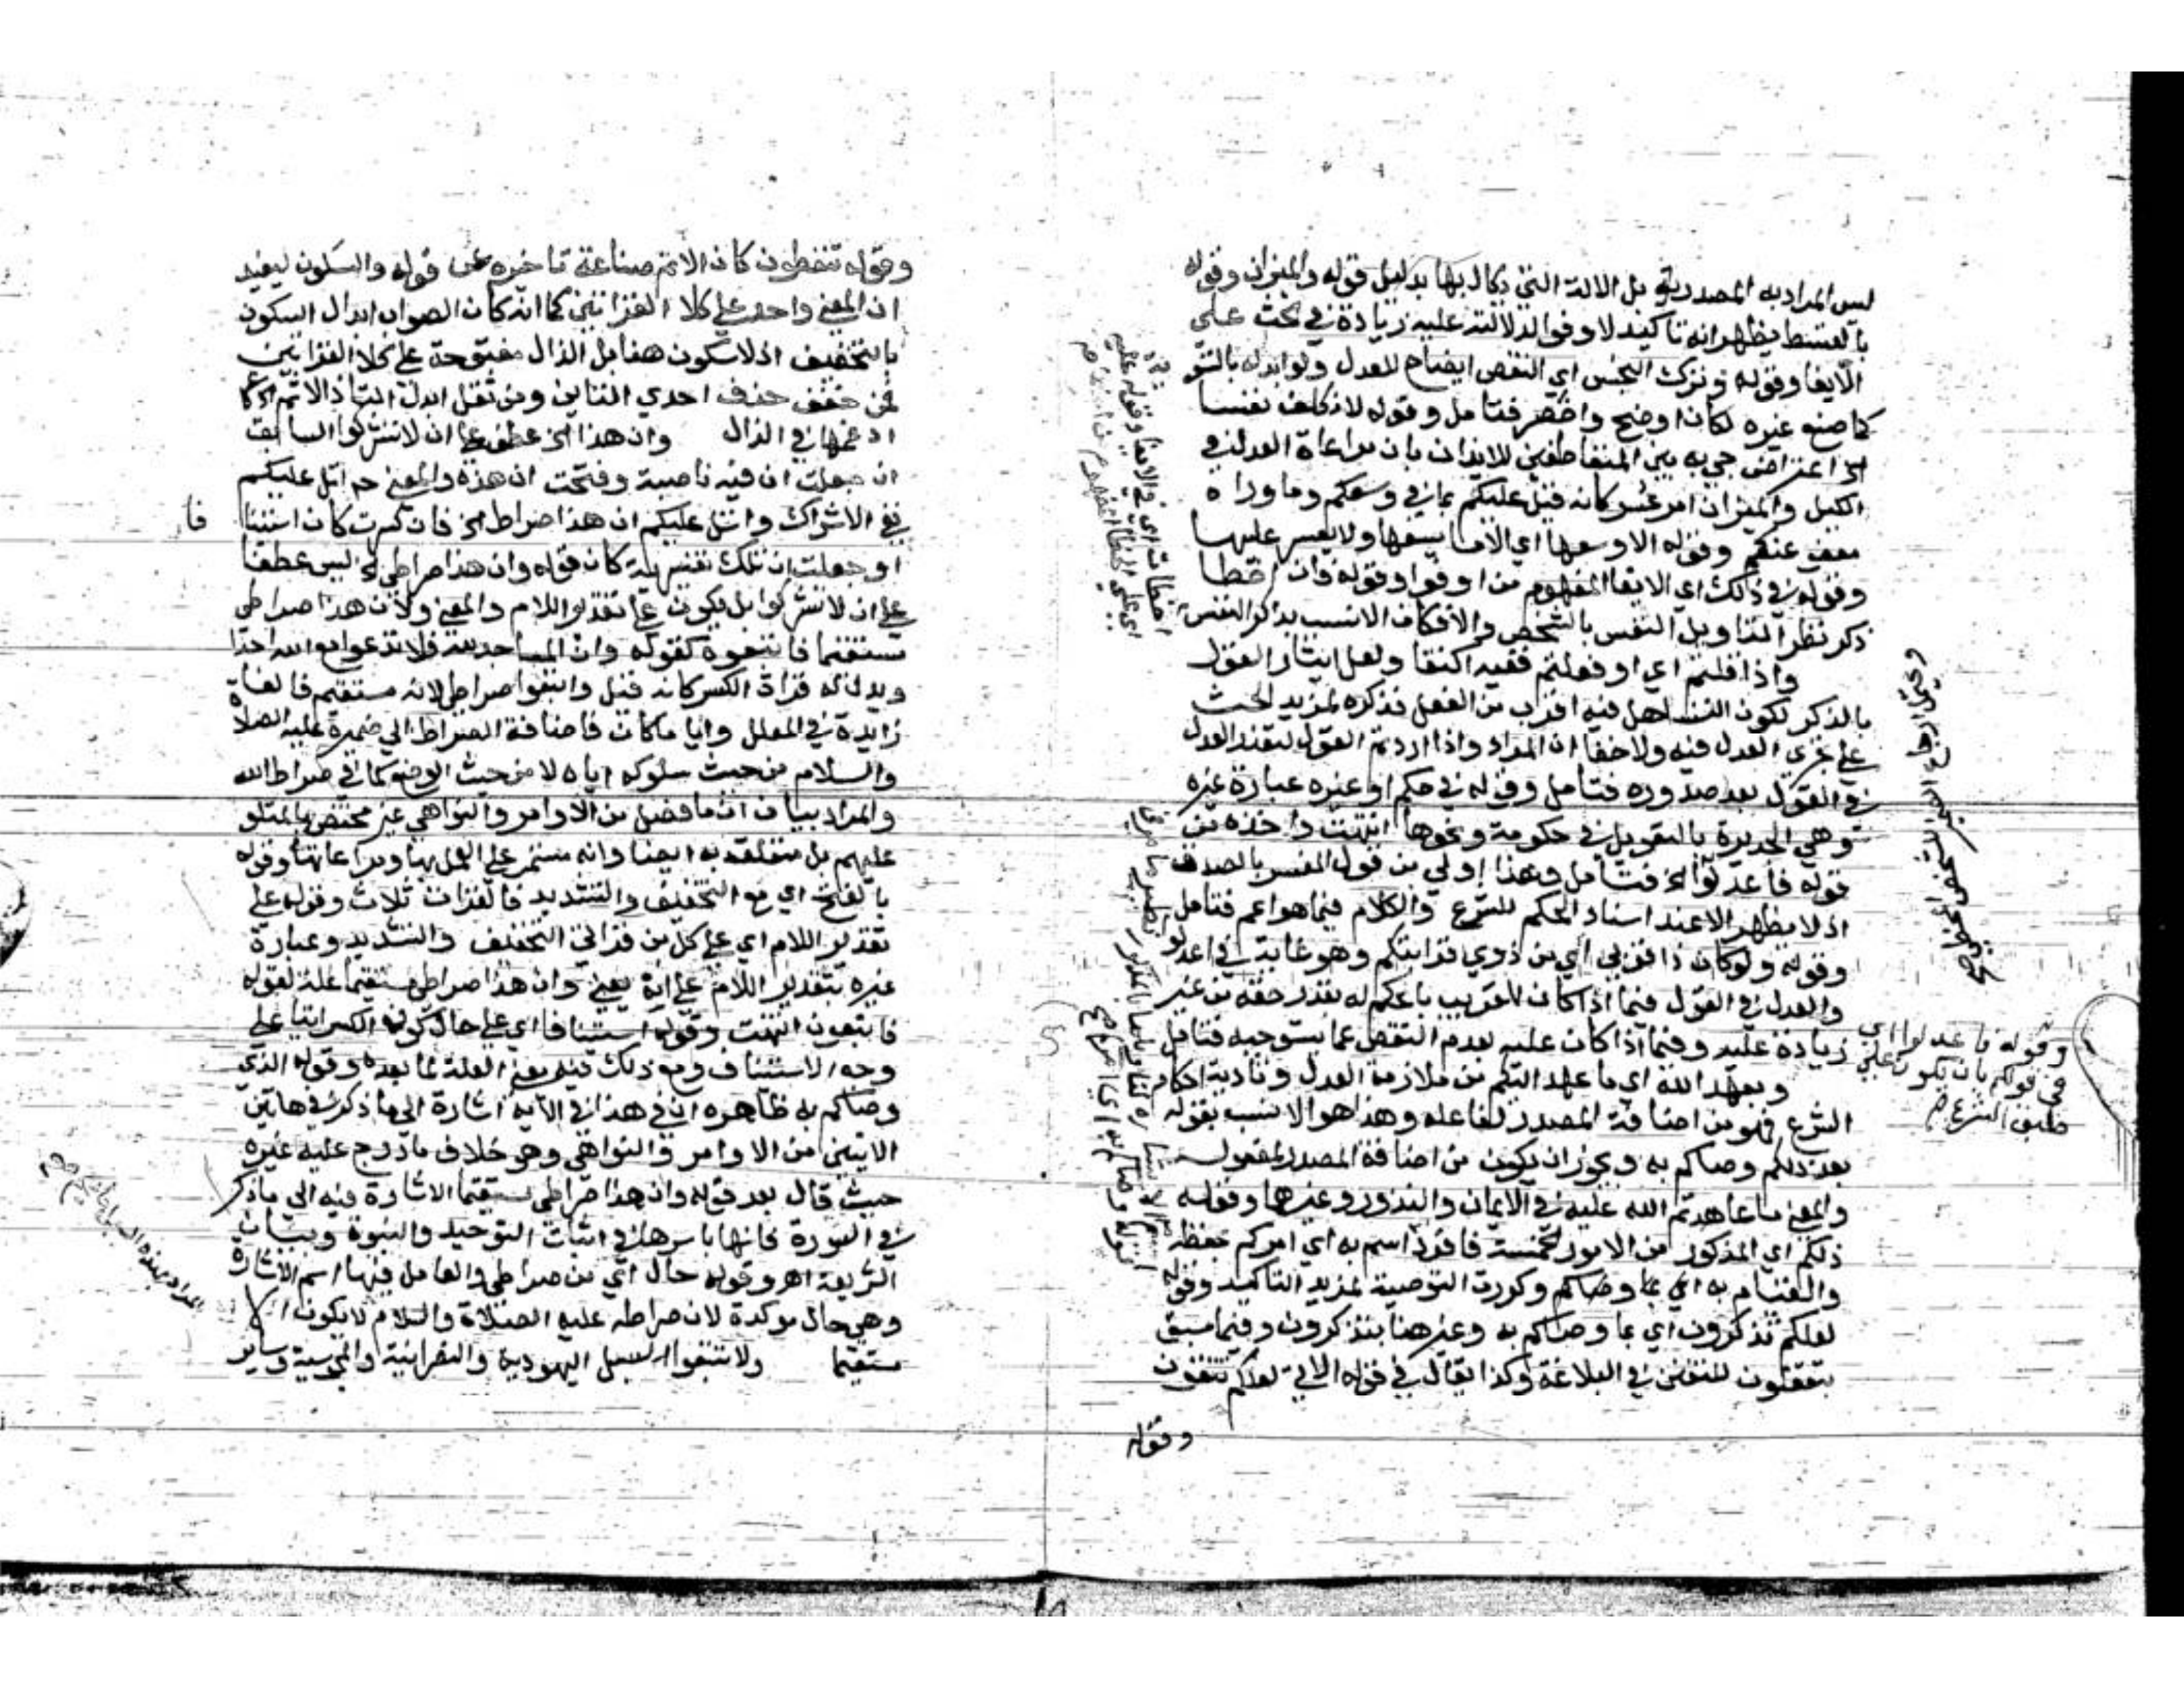 ليس المراد به المصدرية بل الالة التي يكال بها بدليل قوله والميزان وقوله
بالقسط يظهر انه تاكيد لاوفوا لدلالته عليه زيادة في حث علي
الايفا وقوله وترك البخس اي النقص ايضاح للعدل ولو ابدله بالسو
كما صنع غيره لكان اوضح واخصر فتامل وقوله لا نكلف نفسا
الخ اعتراض جي به بين المتعاطفين للايذان بان مراعاة العدل في
الكيل والميزان امر عسر كانه قيل عليكم بما في وسعكم وما وراه
معفو عنكم وقوله الا وسعها اي الا ما يسعها ولا يعسر عليها
وقوله في ذلك اي الايفا المفهوم من اوفوا وقوله فان اخطا
ذكر نظرا لتاويل النفس بالشخص والا فكان الانسب بذكر النفس
واذا قلتم اي او فعلتم ففيه اكتفا ولعل ايثار القول
بالذكر لكون التساهل فيه اقرب من الفعل فذكره لمزيد الحث
علي تحري العدل فيه ولا خفا ان المراد واذا اردتم القول لتعذر العدل
في القول بعد صدوره فتامل وقوله في حكم او غيره عبارة غيره
وهي الجديرة بالتعويل في حكومة ونحوها انتهت واخذه من
قوله فاعدلوا الخ فتامل وهذا اولي من قول المفسر بالصدق
اذ لا يظهر الا عند اسناد الحكم للشرع والكلام فيما هو اعم فتامل
وقوله ولو كان ذا قربي اي من ذوي قرابتكم وهو غاية في اعدلوا
والعدل في القول فيما اذا كان للقريب بالحكم له بقدر حقه من غير
زيادة عليه وفيما اذا كان عليه بعدم النقص عما يستوجبه فتامل
وبعهد الله اي ما عهد اليكم من ملازمة العدل وتادية احكام
الشرع فهو من اضافة المصدر لفاعله وهذا هو الانسب بقوله
بعد ذلكم وصاكم به ويجوز ان يكون من اضافة المصدر لمفعوله
والمعني ما عاهدتم الله عليه في الايمان والنذور وغيرها وقوله
ذلكم اي المذكور من الامور الخمسة وصاكم به اي امركم بحفظه
والقيام به اي بما وصاكم وكررت التوصية لمزيد التاكيد وقوله
لعلكم تذكرون اي بما وصاكم به وعبر هنا بتذكرون وفيما سبق
بتعقلون للتفنن في البلاغة وكذا يقال في قوله الاتي لعلكم تتقون
وقوله
ويحتمل ارجاع الضمير
وقوله فاعدلوا اي
في قولكم بان يكون علي
طبق الشرع صح
وقوله تتعظون كان الاتم صناعة تاخيره عن قوله والسكون ليفيد
ان المعني واحد علي كلا القراتين كما انه كان الصواب ابدال السكون
بالتخفيف اذ لا سكون هنا بل الذال مفتوحة علي كلا القراتين
فمن خفف حذف احدي التاين ومن ثقل ابدل التا ذالا ثم
ادغمها في الذال وان هذا الخ عطف علي ان لا تشركوا السابق
ان جعلت ان فيه ناصبة وفتحت ان هذه والمعني ح اتل عليكم
نفي الاشراك واتل عليكم ان هذا صراطي الخ فان كسرت كان استينافا
او جعلت ان تلك تفسيرية كان قوله وان هذا صراطي الخ ليس عطفا
علي ان لا تشركوا بل يكون علي تقدير اللام والمعني ولان هذا صراطي
مستقيما فاتبعوه كقوله وان المساجد لله فلا تدعوا مع الله احدا
ويدل له قراة الكسر كانه قيل واتبعوا صراطي لانه مستقيم فالفا
زايدة في المعلل وايا ما كان فاضافة الصراط الي ضميره عليه الصلاة
والسلام من حيث سلوكه اياه لا من حيث الوضع كما في صراط الله
والمراد بيان ان ما فصل من الاوامر والنواهي غير مختص بالمتلو
عليهم بل متعلقة به ايضا وانه مستمر علي العمل بها ومراعاتها وقوله
بالفتح اي مع التخفيف والتشديد فالقرات ثلاث وقوله علي
تقدير اللام اي علي كل من قراتي التخفيف والتشديد وعبارة
غيره بتقدير اللام علي انه يعني وان هذا صراطي مستقيما علة لقوله
فاتبعوه انتهت وقوله استينافا اي علي حال كونه الكسر اتيا علي
وجه الاستيناف ومع ذلك فيه معني العلة لما بعده وقوله الذي
وصاكم به ظاهره ان في هذا في الاية اشارة الي ما ذكر في هاتين
الايتين من الاوامر والنواهي وهو خلاف ما درج عليه غيره
حيث قال بعد قوله وان هذا صراطي مستقيما الاشارة فيه الي ما ذكر
في السورة فانها باسرها في اثبات التوحيد والنبوة وبيان
الشريعة اهـ وقوله حال اي من صراطي والعامل فيها اسم الاشارة
وهي حال موكدة لان صراطه عليه الصلاة والسلام لا يكون الا
مستقيما ولا تتبعوا السبل اليهودية والنصرانية والمجوسية وساير